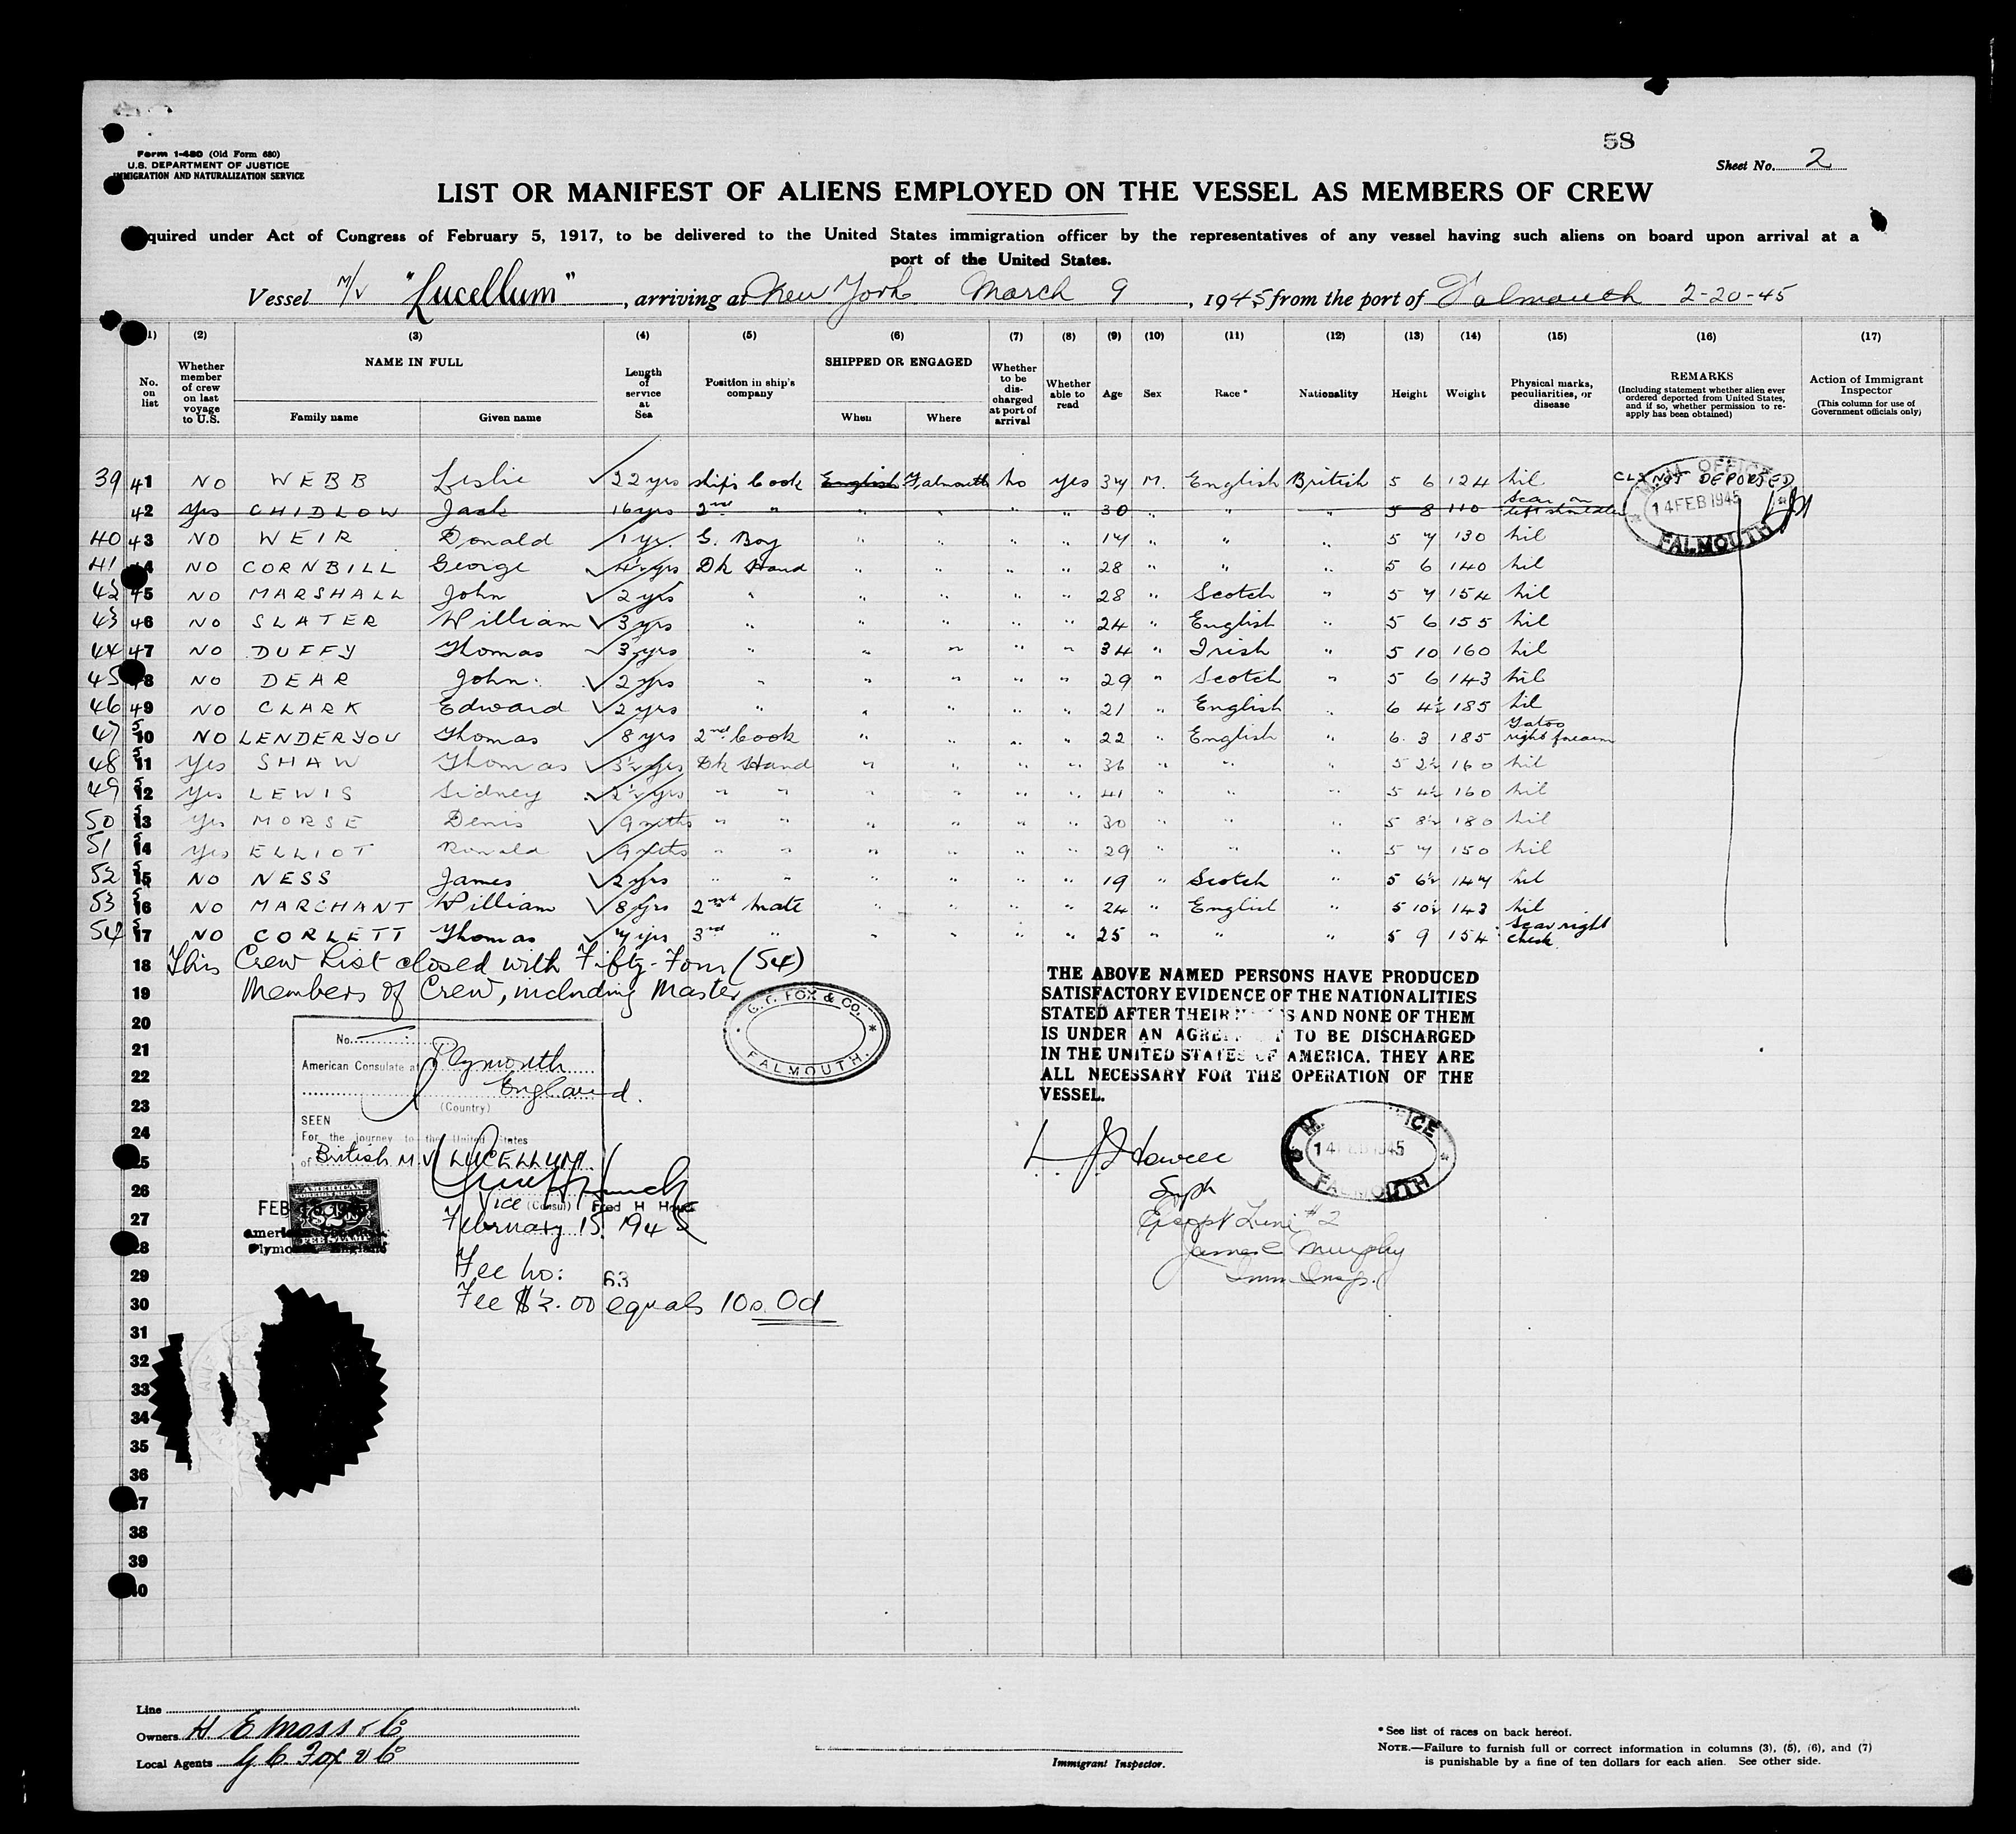 58
Form I-480 (Old Form 680)
U.S. DEPARTMENT OF JUSTICE
IMMIGRATION AND NATURALIZATION SERVICE
Sheet No. 2
LIST OR MANIFEST OF ALIENS EMPLOYED ON THE VESSEL AS MEMBERS OF CREW
quired under Act of Congress of February 5, 1917, to be delivered to the United States immigration officer by the representatives of any vessel having such aliens on board upon arrival at a
port of the United States.
Vessel M/V "Lucellum", arriving at New York March 9, 1945 from the port of Falmouth 2-20-45
(1) (2) (3) (4) (5) (6) (7) (8) (9) (10) (11) (12) (13) (14) (15) (16) (17)
No. on list
Whether member of crew on last voyage to U.S.
NAME IN FULL
Family name Given name
Length of service at Sea
Position in ship's company
SHIPPED OR ENGAGED
When Where
Whether to be discharged at port of arrival
Whether able to read
Age
Sex
Race *
Nationality
Height
Weight
Physical marks, peculiarities, or disease
REMARKS
(Including statement whether alien ever ordered deported from United States, and if so, whether permission to re-apply has been obtained)
Action of Immigrant Inspector
(This column for use of Government officials only)
39 41 NO WEBB Leslie 22 yrs ship's Cook English Falmouth No yes 34 M. English British 5 6 124 Nil NOT DEPORTED
42 Yes CHIDLOW Jack 16 yrs 2nd " " " " " 30 " " " 5 8 110 Scar on left shoulder
40 43 NO WEIR Donald 1 yr. G. Boy " " " " 17 " " " 5 7 130 Nil
41 44 NO CORNBILL George 4½ yrs Dk Hand " " " " 28 " " " 5 6 140 Nil
42 45 NO MARSHALL John 2 yrs " " " " " 28 " Scotch " 5 7 154 Nil
43 46 NO SLATER William 3 yrs " " " " " 24 " English " 5 6 155 Nil
44 47 NO DUFFY Thomas 3 yrs " " " " " 34 " Irish " 5 10 160 Nil
45 48 NO DEAR John 2 yrs " " " " " 29 " Scotch " 5 6 143 Nil
46 49 NO CLARK Edward 2 yrs " " " " " 21 " English " 6 4½ 185 Nil
47 50 NO LENDERYOU Thomas 8 yrs 2nd Cook " " " " 22 " English " 6 3 185 Tatoo right forearm
48 51 Yes SHAW Thomas 3½ yrs Dk Hand " " " " 36 " " " 5 2½ 160 Nil
49 52 Yes LEWIS Sidney 2½ yrs " " " " " " 41 " " " 5 4½ 160 Nil
50 53 Yes MORSE Denis 9 mths " " " " " " 30 " " " 5 8½ 180 Nil
51 54 Yes ELLIOT Ronald 9 mths " " " " " " 29 " " " 5 7 150 Nil
52 55 NO NESS James 2 yrs " " " " " " 19 " Scotch " 5 6½ 147 Nil
53 56 NO MARCHANT William 8 yrs 2nd Mate " " " " 24 " English " 5 10½ 143 Nil
54 57 NO CORLETT Thomas 7 yrs 3rd " " " " " 25 " " " 5 9 154 Scar right cheek
14 FEB 1945
FALMOUTH
18 This Crew List closed with Fifty-Four (54)
19 Members of Crew, including Master
20
21
22
23
24
25
26
27
28
29
30
31
32
33
34
35
36
37
38
39
40
G. C. FOX & CO.
FALMOUTH.
No.
American Consulate at Plymouth
England.
(Country)
SEEN
For the journey to the United States
of British M.V LUCELLUM
Vice (Consul) Fred H Houck
February 15, 1945
AMERICAN FOREIGN SERVICE
$2
FEE STAMP
FEB 15 1945
American
Plymouth, England
Fee No: 63
Fee $2.00 equals 10s.0d
THE ABOVE NAMED PERSONS HAVE PRODUCED
SATISFACTORY EVIDENCE OF THE NATIONALITIES
STATED AFTER THEIR NAMES AND NONE OF THEM
IS UNDER AN AGREEMENT TO BE DISCHARGED
IN THE UNITED STATES OF AMERICA. THEY ARE
ALL NECESSARY FOR THE OPERATION OF THE
VESSEL.
Supt
14 FEB 1945
FALMOUTH
Except Line #2
James C Murphy
Imm Insp.
Line
Owners H. E. Moss & Co
Local Agents G. C. Fox & Co
Immigrant Inspector.
* See list of races on back hereof.
NOTE.—Failure to furnish full or correct information in columns (3), (5), (6), and (7)
is punishable by a fine of ten dollars for each alien. See other side.